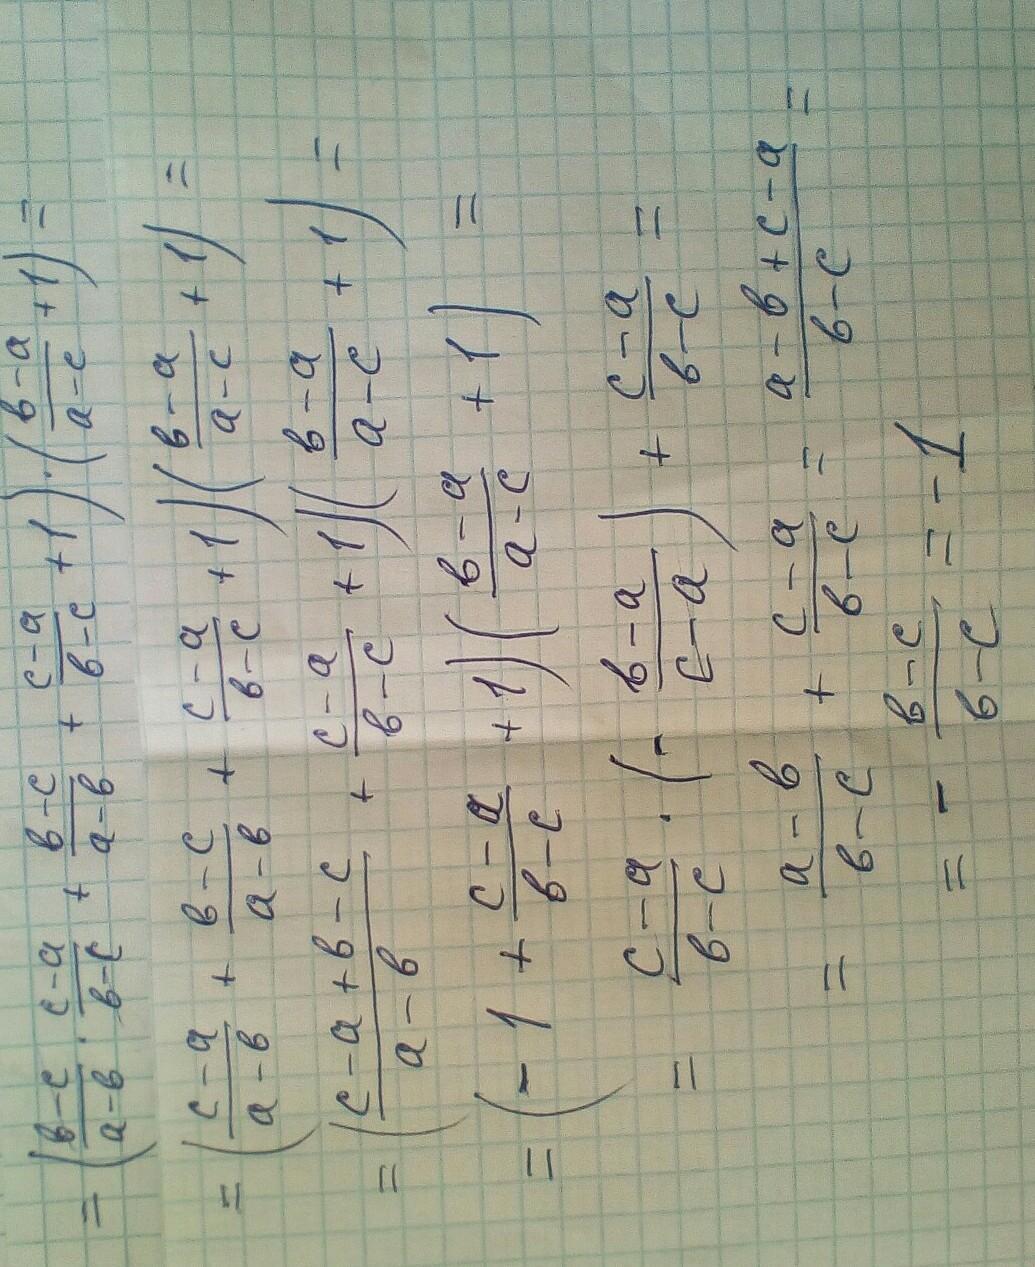 = (в-с/а-в · с-а/в-с + в-с/а-в + с-а/в-с + 1) · (в-а/а-с + 1) =
= (с-а/а-в + в-с/а-в + с-а/в-с + 1)(в-а/а-с + 1) =
= (с-а+в-с/а-в + с-а/в-с + 1)(в-а/а-с + 1) =
= (-1 + с-а/в-с + 1)(в-а/а-с + 1) =
= с-а/в-с · (- в-а/с-а) + с-а/в-с =
= а-в/в-с + с-а/в-с = а-в+с-а/в-с =
= - в-с/в-с = -1